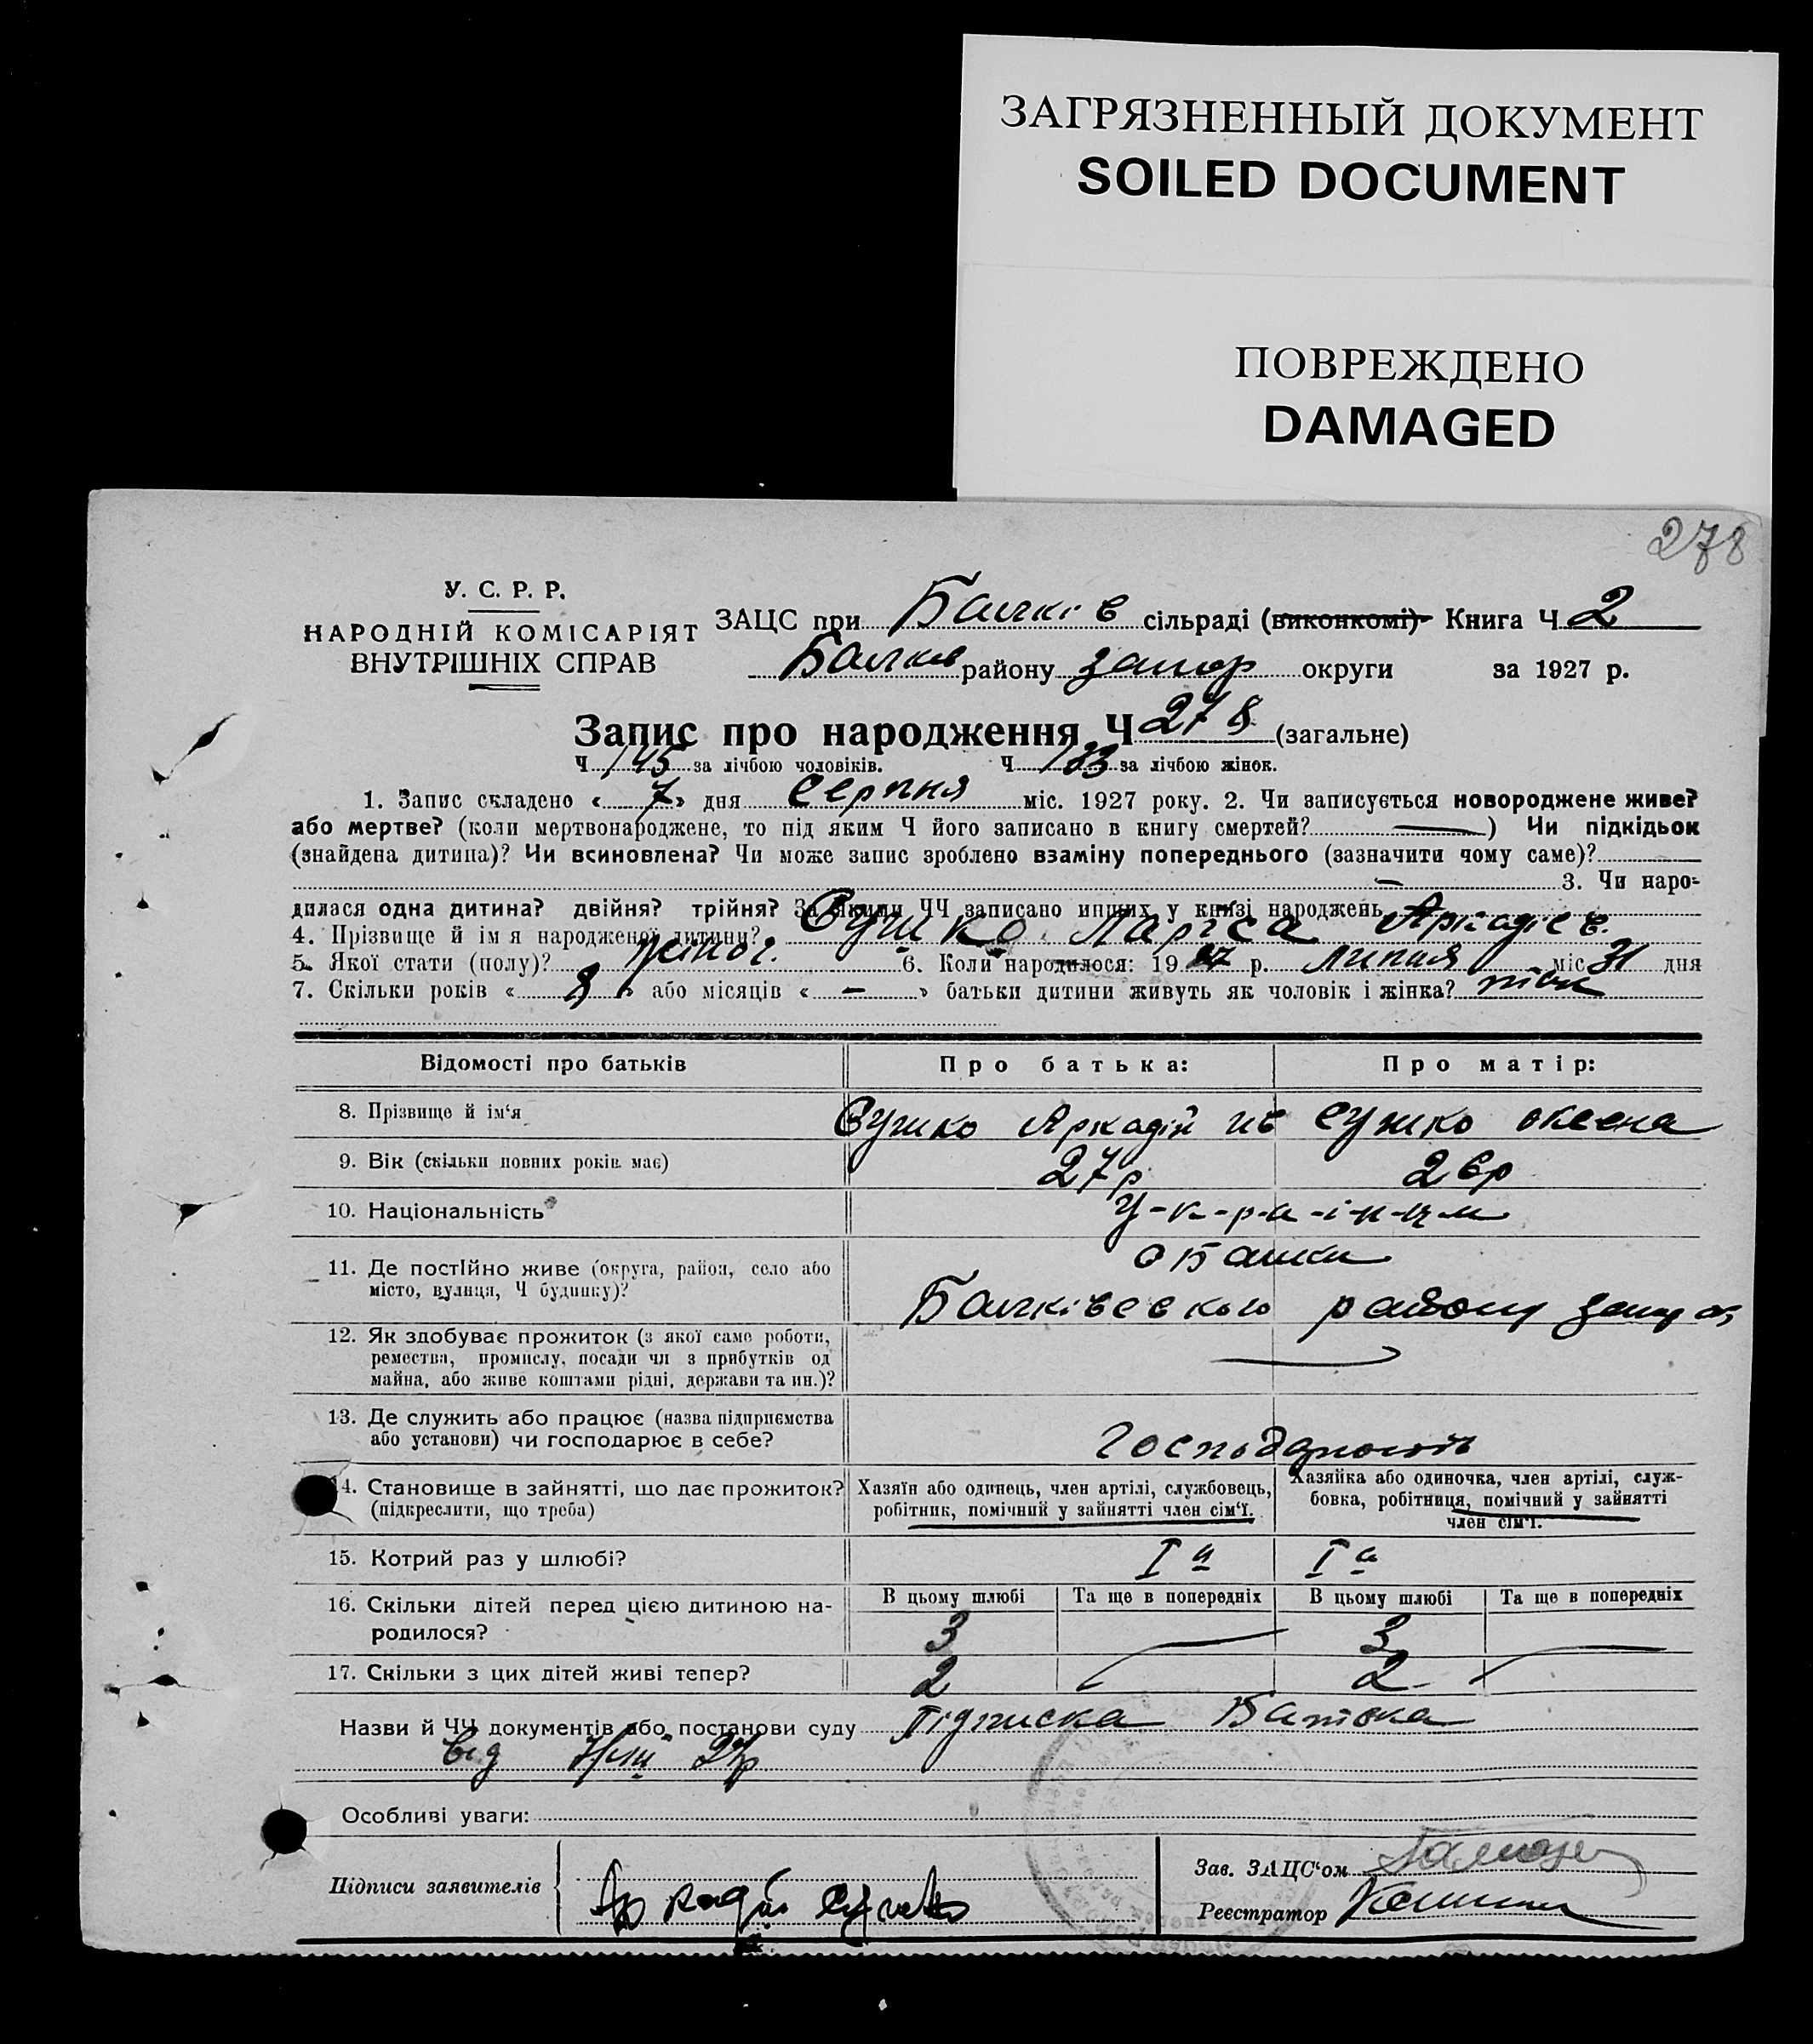 ЗАГРЯЗНЕННЫЙ ДОКУМЕНТ
SOILED DOCUMENT
ПОВРЕЖДЕНО
DAMAGED
278
У. С. Р. Р.
НАРОДНІЙ КОМІСАРІЯТ
ВНУТРІШНІХ СПРАВ
ЗАЦС при Балків сільраді (виконкомі) Книга Ч 2
Балків району запор округи за 1927 р.
Запис про народження Ч 278 (загальне)
Ч 145 за лічбою чоловіків. Ч 133 за лічбою жінок.
1. Запис складено « 7 » дня серпня міс. 1927 року. 2. Чи записується новороджене живе?
або мертве? (коли мертвонароджене, то під яким Ч його записано в книгу смертей? —) Чи підкідьок
(знайдена дитина)? Чи всиновлена? Чи може запис зроблено взаміну попереднього (зазначити чому саме)?
— 3. Чи наро-
дилася одна дитина? двійня? трійня? За якими ЧЧ записано инших у книзі народжень
4. Прізвище й ім я народженої дитини? Сушко Лариса Аркадієв.
5. Якої стати (полу)? жіноч. 6. Коли народилося: 1927 р. липня міс 31 дня
7. Скільки років « 8 » або місяців « — » батьки дитини живуть як чоловік і жінка?
Відомості про батьків Про батька: Про матір:
8. Прізвище й ім‘я Сушко Аркадій Ив Сушко Оксена
9. Вік (скільки повних років має) 27р 26р
10. Національність У-к-р-а-ї-н-ц-и
11. Де постійно живе (округа, район, село або
місто, вулиця, Ч будинку)?
с Балки
Балківського району запор ок
12. Як здобуває прожиток (з якої саме роботи,
ремества, промислу, посади чи з прибутків од
майна, або живе коштами рідні, держави та ин.)?
13. Де служить або працює (назва підприємства
або установи) чи господарює в себе?
Господарюють
14. Становище в зайнятті, що дає прожиток?
(підкреслити, що треба)
Хазяїн або одинець, член артілі, службовець,
робітник, помічний у зайнятті член сім‘ї.
Хазяйка або одиночка, член артілі, служ-
бовка, робітниця, помічний у зайнятті
член сім‘ї.
15. Котрий раз у шлюбі? I а I а
16. Скільки дітей перед цією дитиною на-
родилося?
В цьому шлюбі Та ще в попередніх В цьому шлюбі Та ще в попередніх
3 3
17. Скільки з цих дітей живі тепер? 2 2
Назви й ЧЧ документів або постанови суду Підписка Батька
від 7/VIII 27р
Особливі уваги:
Підписи заявителів
Аркадій Сушко
Зав. ЗАЦС‘ом
Реєстратор